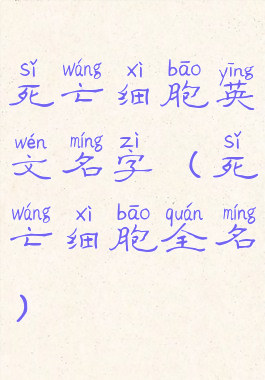 sǐ wáng xì bāo yīng
死亡细胞英
wén míng zì sǐ
文名字(死
wáng xì bāo quán míng
亡细胞全名
)